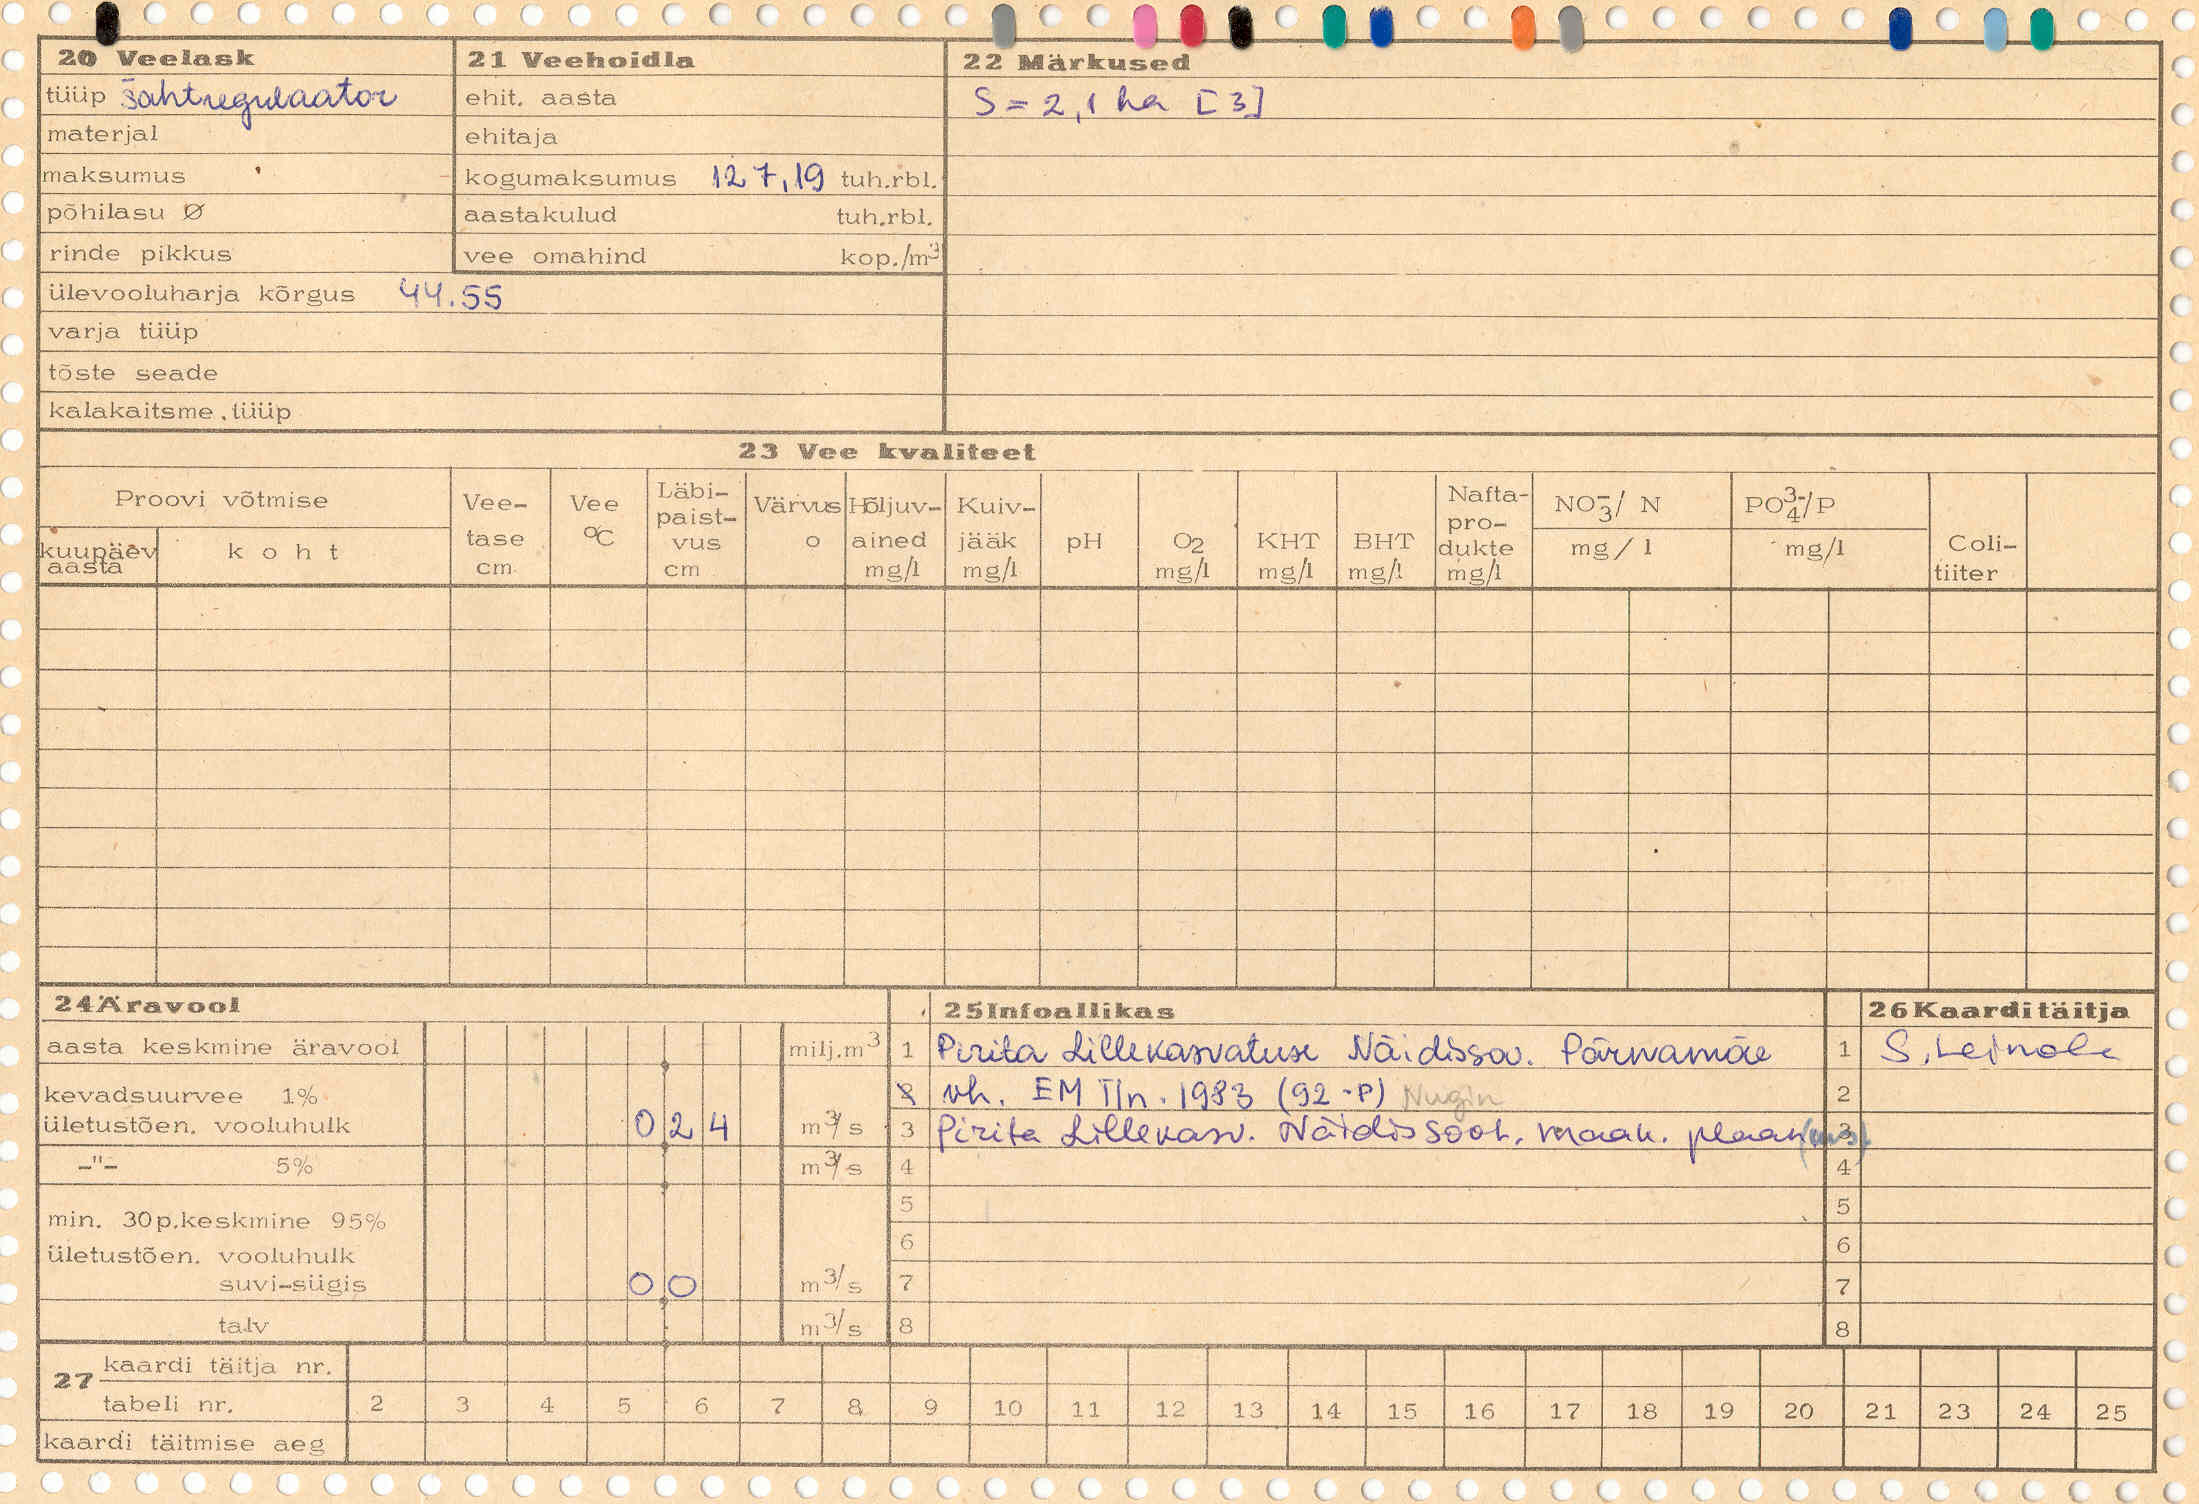 20 Veelask
tüüp šahtregulaator
materjal
maksumus
põhilasu Ø
rinde pikkus
ülevooluharja kõrgus 44.55
varja tüüp
tõste seade
kalakaitsme, tüüp
21 Veehoidla
ehit. aasta
ehitaja
kogumaksumus 127,19 tuh.rbl.
aastakulud tuh.rbl.
vee omahind kop./m³
22 Märkused
S = 2,1 ha [3]
23 Vee kvaliteet
Proovi võtmise
kuupäev aasta
koht
Vee-
tase
cm
Vee
°C
Läbi-
paist-
vus
cm
Värvus
o
Hõljuv-
ained
mg/l
Kuiv-
jääk
mg/l
pH
O2
mg/l
KHT
mg/l
BHT
mg/l
Nafta-
pro-
dukte
mg/l
NO3-/ N
mg/l
PO4 3-/P
mg/l
Coli-
tiiter
24 Äravool
aasta keskmine äravool milj.m³
kevadsuurvee 1%
ületustõen. vooluhulk 0 2 4 m³/s
-"- 5% m³/s
min. 30p.keskmine 95%
ületustõen. vooluhulk
suvi-sügis 0 0 m³/s
talv m³/s
25 Infoallikas
1 Pirita Lillekasvatuse Näidissov. Pärnamäe
2 vh. EM Tln. 1983 (92-P) Nugin
3 Pirita Lillekasv. Näidissovh. maak. plaan
4
5
6
7
8
26 Kaarditäitja
1 S. Leinola
2
3
4
5
6
7
8
27 kaardi täitja nr.
tabeli nr. 2 3 4 5 6 7 8 9 10 11 12 13 14 15 16 17 18 19 20 21 23 24 25
kaardi täitmise aeg